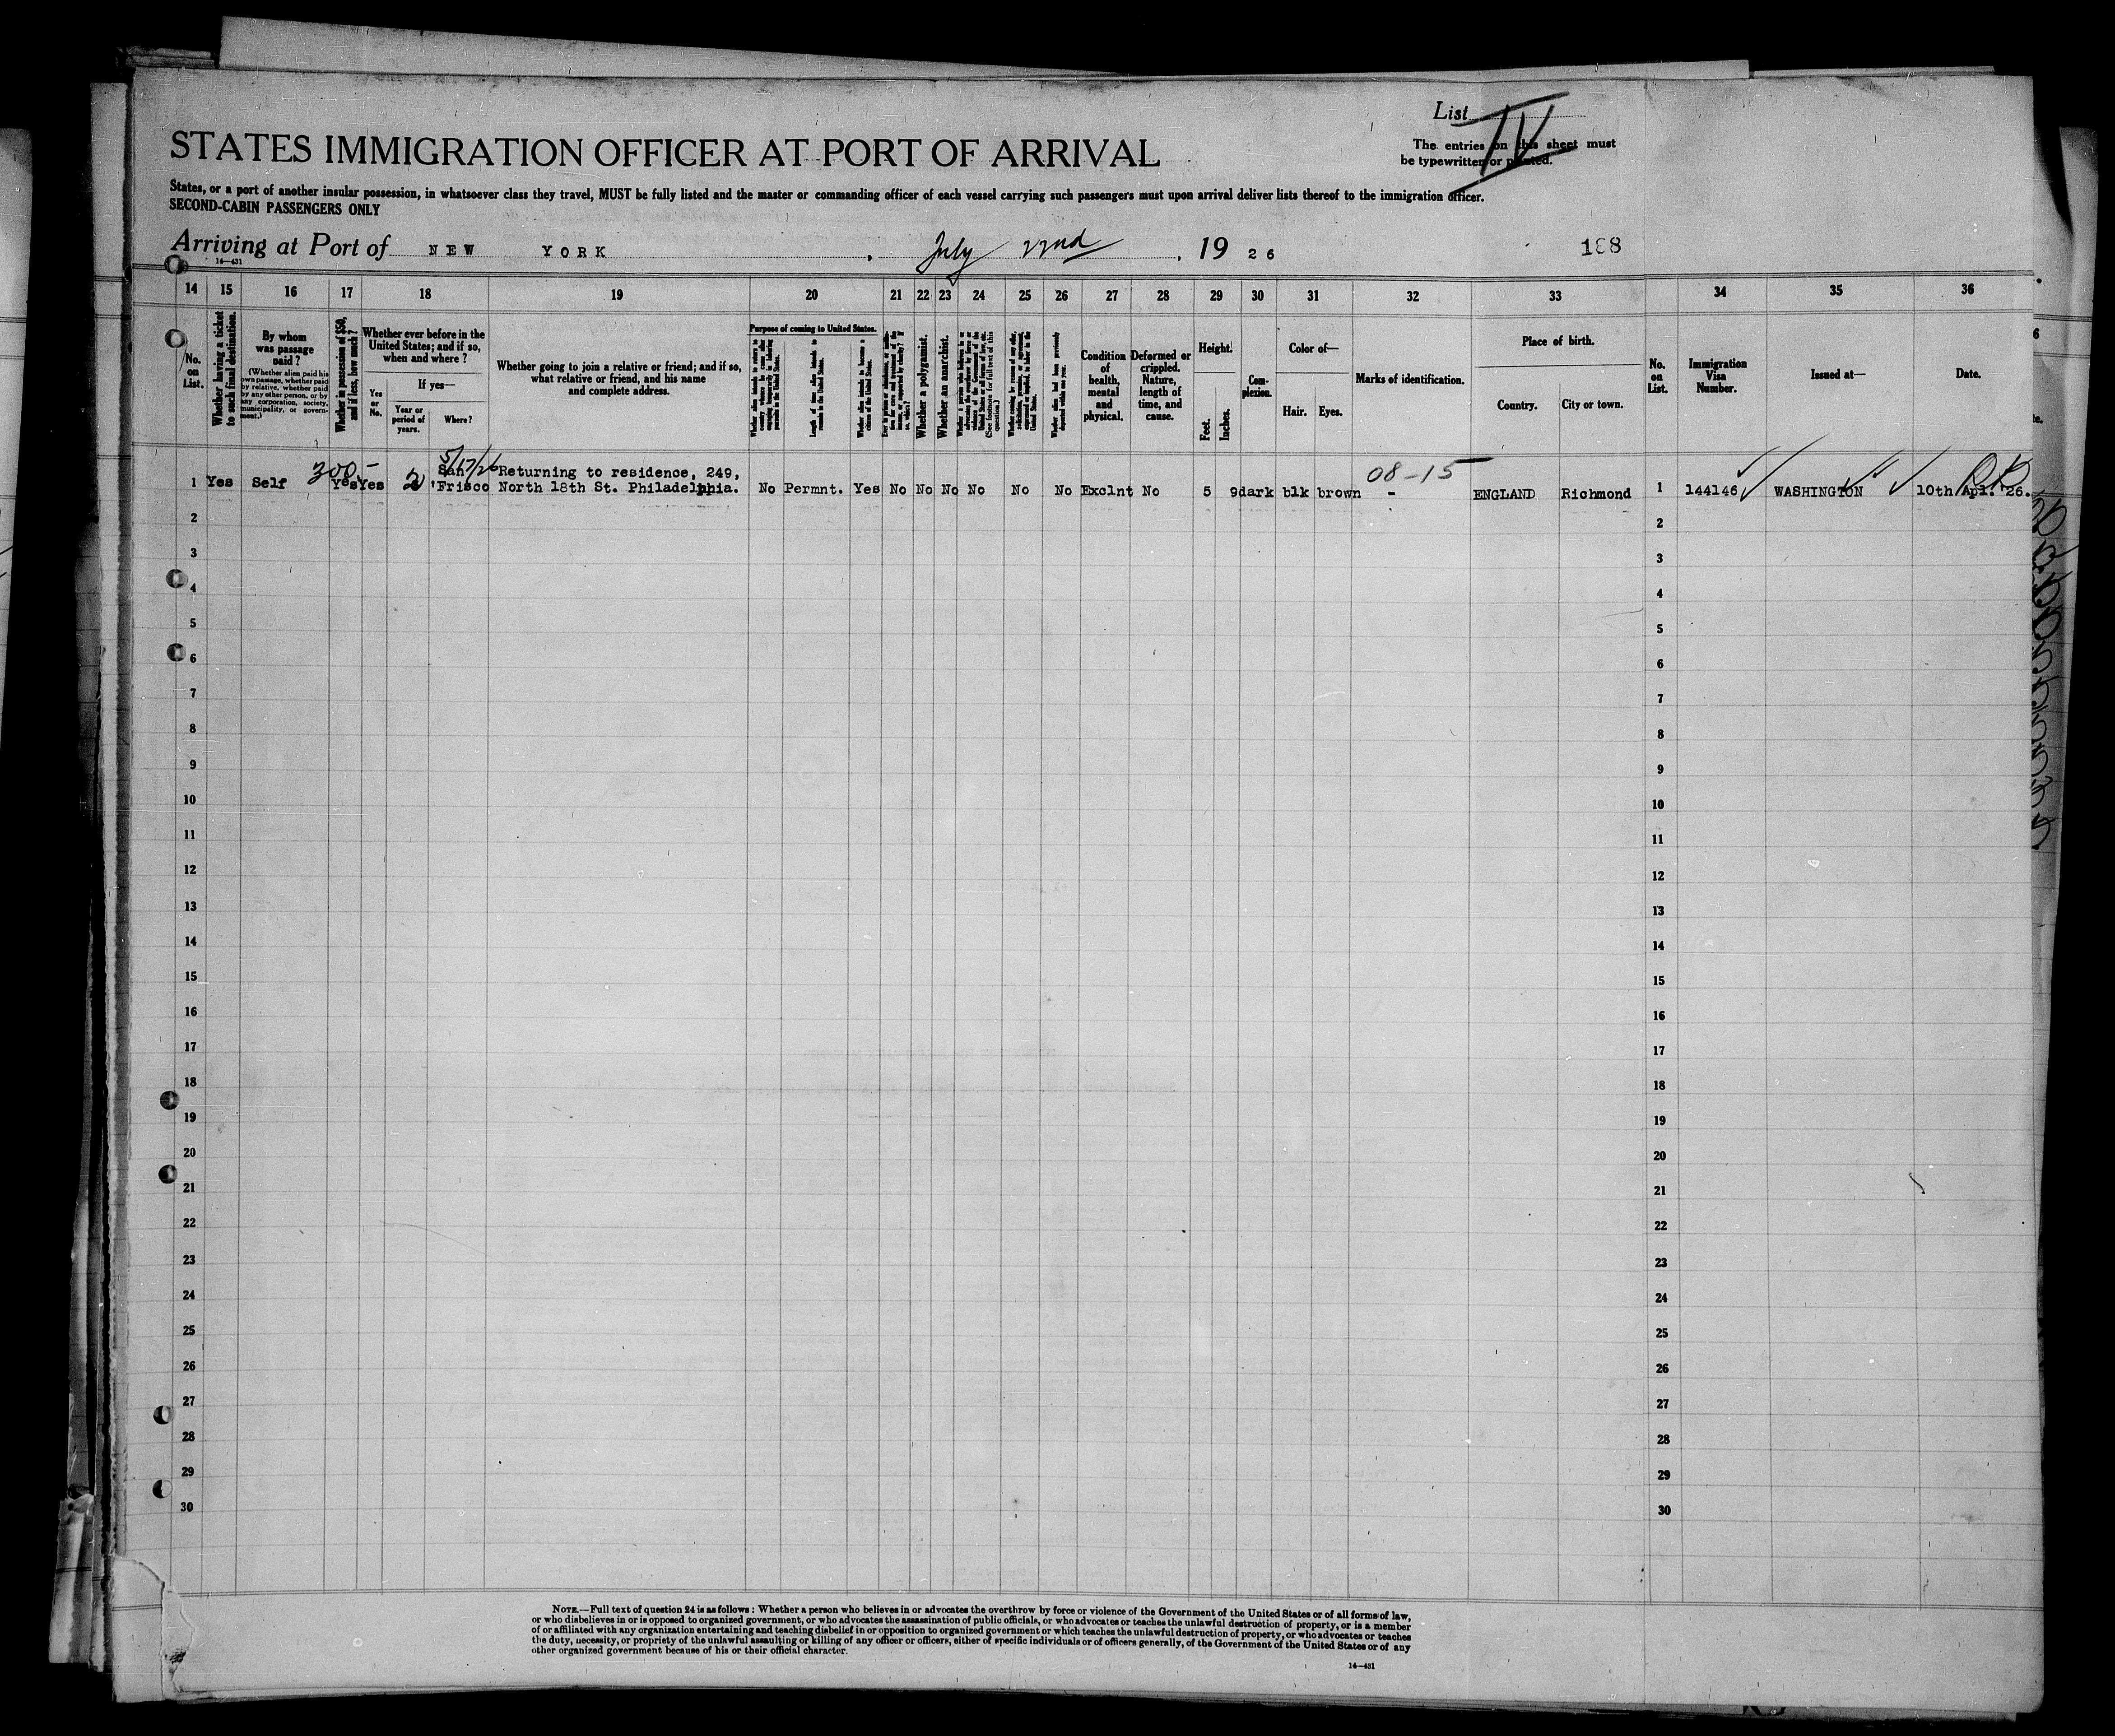 List IV
STATES IMMIGRATION OFFICER AT PORT OF ARRIVAL
The entries on this sheet must
be typewritten or printed.
States, or a port of another insular possession, in whatsoever class they travel, MUST be fully listed and the master or commanding officer of each vessel carrying such passengers must upon arrival deliver lists thereof to the immigration officer.
SECOND-CABIN PASSENGERS ONLY
Arriving at Port of NEW YORK, July 22nd, 1926
188
14—431
14 15 16 17 18 19 20 21 22 23 24 25 26 27 28 29 30 31 32 33 34 35 36
No. on List.
Whether having a ticket to such final destination.
By whom was passage paid?
(Whether alien paid his own passage, whether paid by relative, whether paid by any other person, or by any corporation, society, municipality, or government.)
Whether in possession of $50, and if less, how much?
Whether ever before in the United States; and if so, when and where?
Yes or No.
If yes—
Year or period of years.
Where?
Whether going to join a relative or friend; and if so, what relative or friend, and his name and complete address.
Purpose of coming to United States.
Length of time alien intends to remain in the United States.
Whether alien intends to become a citizen of the United States.
Whether a polygamist.
Whether an anarchist.
Condition of health, mental and physical.
Deformed or crippled. Nature, length of time, and cause.
Height.
Feet.
Inches.
Complexion.
Color of—
Hair.
Eyes.
Marks of identification.
Place of birth.
Country.
City or town.
No. on List.
Immigration Visa Number.
Issued at—
Date.
300- 5/17/26 08-15
San Returning to residence, 249,
1 Yes Self Yes Yes 2 'Frisco North 18th St. Philadelphia. No Permnt. Yes No No No No No No Exclnt No 5 9 dark blk brown - ENGLAND Richmond 1 144146 WASHINGTON 10th Apl. '26.
2 2
3 3
4 4
5 5
6 6
7 7
8 8
9 9
10 10
11 11
12 12
13 13
14 14
15 15
16 16
17 17
18 18
19 19
20 20
21 21
22 22
23 23
24 24
25 25
26 26
27 27
28 28
29 29
30 30
NOTE.—Full text of question 24 is as follows: Whether a person who believes in or advocates the overthrow by force or violence of the Government of the United States or of all forms of law,
or who disbelieves in or is opposed to organized government, or who advocates the assassination of public officials, or who advocates or teaches the unlawful destruction of property, or is a member
of or affiliated with any organization entertaining and teaching disbelief in or opposition to organized government or which teaches the unlawful destruction of property, or who advocates or teaches
the duty, necessity, or propriety of the unlawful assaulting or killing of any officer or officers, either of specific individuals or of officers generally, of the Government of the United States or of any
other organized government because of his or their official character.
14—431